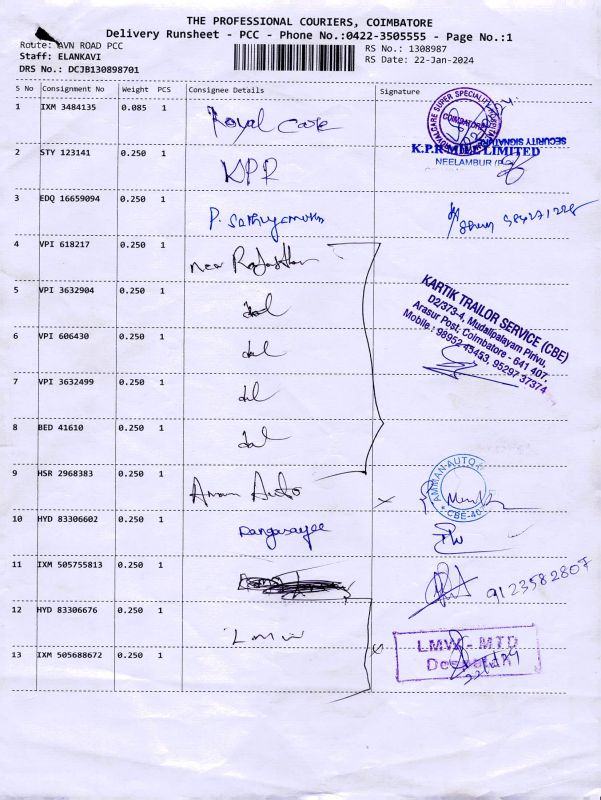 THE PROFESSIONAL COURIERS, COIMBATORE
Delivery Runsheet - PCC - Phone No.:0422-3505555 - Page No.:1
Route: AVN ROAD PCC
Staff: ELANKAVI
DRS No.: DCJB130898701
RS No.: 1308987
RS Date: 22-Jan-2024
S No Consignment No Weight PCS Consignee Details Signature
1 IXM 3484135 0.085 1 Royal Care
ROYALCARE SUPER SPECIALITY HOSPITAL
COIMBATORE
SECURITY SIGNATURE
2 STY 123141 0.250 1 KPR
K.P.R MILL LIMITED
NEELAMBUR (PO)
3 EDQ 16659094 0.250 1 P. Sathiyamurthi
4 VPI 618217 0.250 1 New Rajasthan
5 VPI 3632904 0.250 1
KARTIK TRAILOR SERVICE (CBE)
D2/373-4, Mudalipalayam Pirivu,
Arasur Post, Coimbatore - 641 407,
Mobile : 98952 45453, 95297 37374
6 VPI 606430 0.250 1
7 VPI 3632499 0.250 1
8 BED 41610 0.250 1
9 HSR 2968383 0.250 1 Amman Auto
AMMAN AUTO
CBE-46
10 HYD 83306602 0.250 1 Rangarayee
11 IXM 505755813 0.250 1
9123582807
12 HYD 83306676 0.250 1 LMW
LMW - MTD
Despatch
13 IXM 505688672 0.250 1